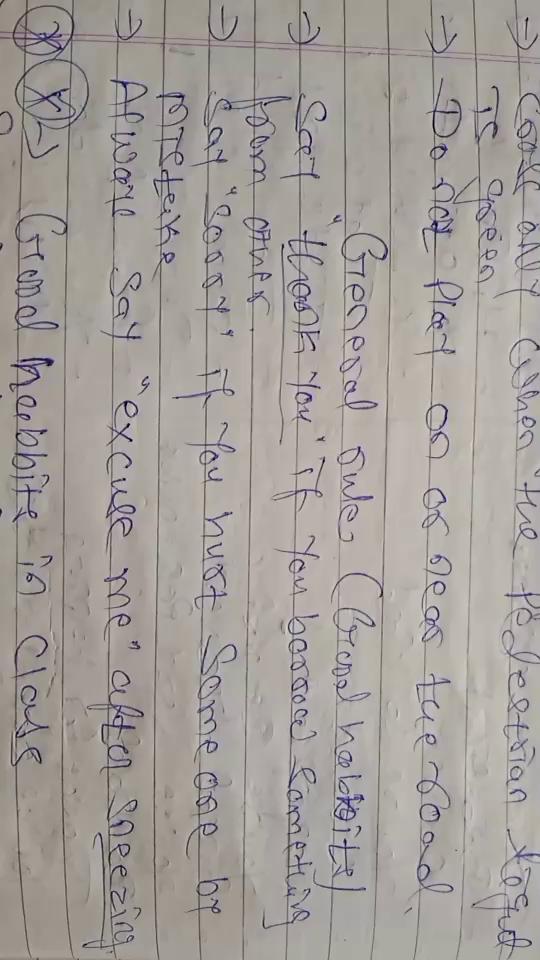 → Cross only when the pedestrian light
is green
→ Do not play on or near the road.
General rule (Good habbits)
→ Say "thank you" if you borrow something
from other
→ Say "Sorry" if you hurt someone by
misteke
→ Always Say "excuse me" after sneezing
Good habbits in Class